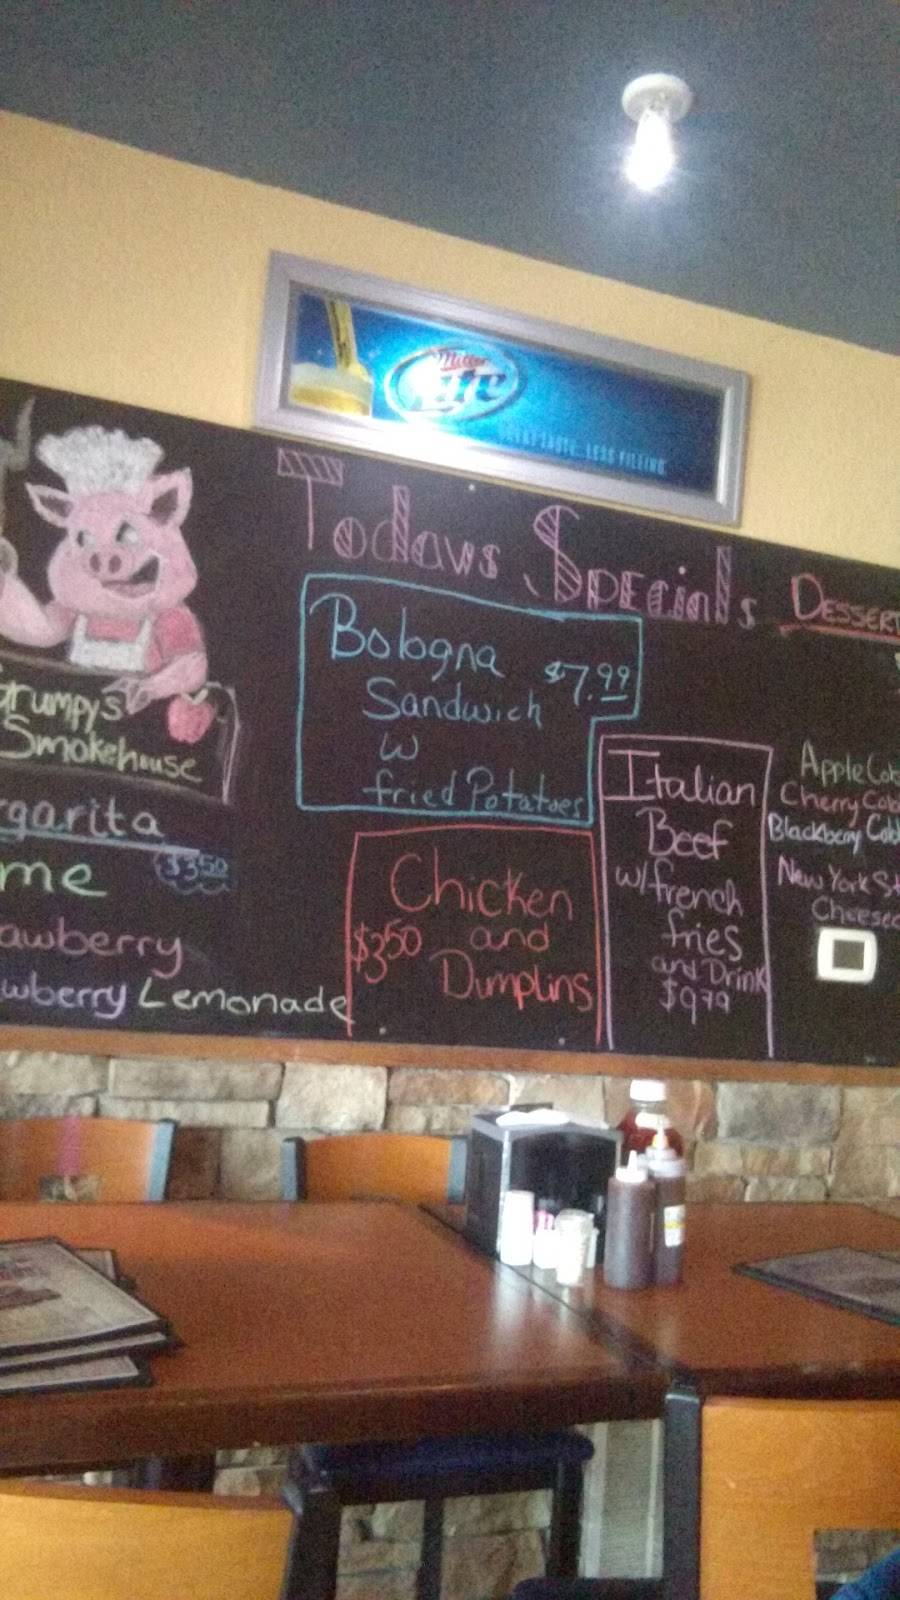 Miller
Lite
GREAT TASTE... LESS FILLING.
Todays Specials
Grumpy's
Smokehouse
garita
me $3.50
awberry
wberry Lemonade
Bologna $7.99
Sandwich
w
fried Potatoes
Chicken
$3.50 and
Dumplins
Italian
Beef
w/french
fries
and Drink
$9.79
Dessert
Apple Cob
Cherry Cob
Blackberry Cob
New York St
Cheesec